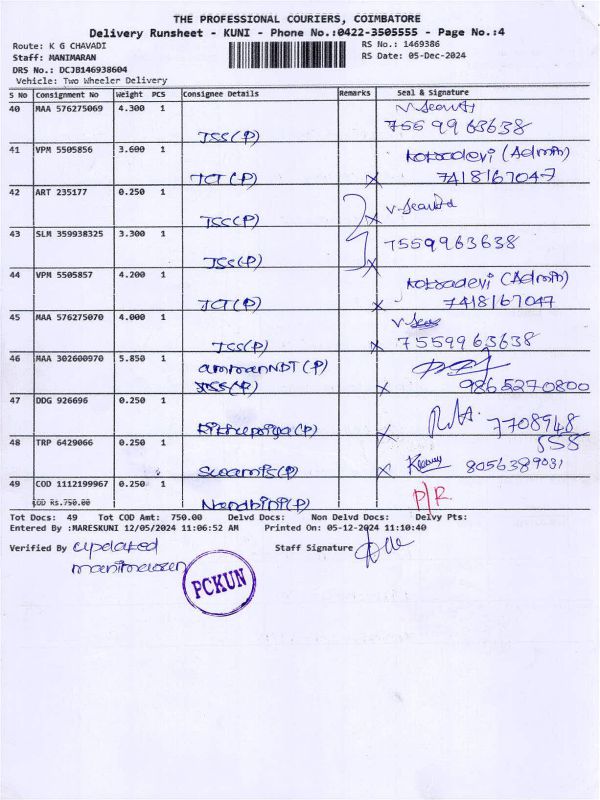 THE PROFESSIONAL COURIERS, COIMBATORE
Delivery Runsheet - KUNI - Phone No.:0422-3505555 - Page No.:4
Route: K G CHAVADI RS No.: 1469386
Staff: MANIMARAN RS Date: 05-Dec-2024
DRS No.: DCJB146938604
Vehicle: Two Wheeler Delivery
S No Consignment No Weight PCS Consignee Details Remarks Seal & Signature
40 MAA 576275069 4.300 1
JSS(P) 7559963638
41 VPM 5505856 3.600 1 (Admin)
TCT(P) 7418167047
42 ART 235177 0.250 1
JSS(P)
43 SLM 359938325 3.300 1 7559963638
JSS(P)
44 VPM 5505857 4.200 1 (Admin)
TCT(P) 7418167047
45 MAA 576275070 4.000 1
JSS(P) 7559963638
46 MAA 302600970 5.850 1 ammanNDT(P)
JSS(P) 9865270800
47 DDG 926696 0.250 1
7708948
558
48 TRP 6429066 0.250 1
8056389031
49 COD 1112199967 0.250 1 P/R
COD Rs.750.00 Nandhini(P)
Tot Docs: 49 Tot COD Amt: 750.00 Delvd Docs: Non Delvd Docs: Delvy Pts:
Entered By :MARESKUNI 12/05/2024 11:06:52 AM Printed On: 05-12-2024 11:10:40
Verified By updated Staff Signature
manimaran
PCKUN